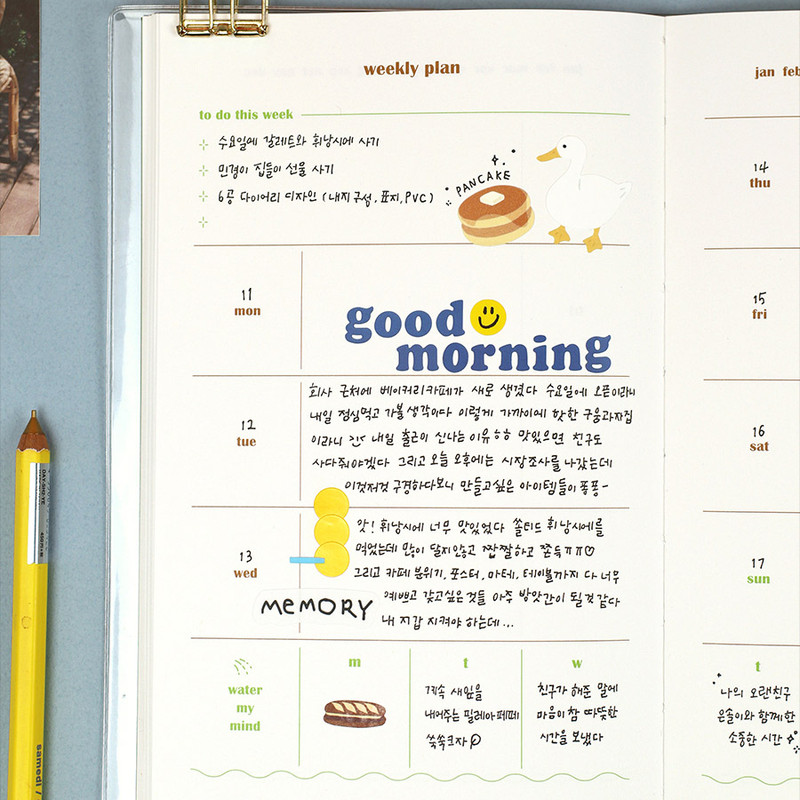 weekly plan
to do this week
수요일에 갈레트와 휘낭시에 사기
민경이 집들이 선물 사기
6공 다이어리 디자인 (내지구성, 표지, PVC)
PANCAKE
11
mon
good
morning
12
tue
회사 근처에 베이커리카페가 새로 생겼다 수요일에 오픈이라니
내일 점심먹고 가볼 생각이다 이렇게 가까이에 핫한 구움과자집
이라니 내일 출근이 신나는 이유ㅎㅎ 맛있으면 친구도
사다줘야겠다 그리고 오늘 오후에는 시장조사를 나갔는데
이것저것 구경하다보니 만들고싶은 아이템들이 퐁퐁~
13
wed
앗! 휘낭시에 너무 맛있었다 쏠티드 휘낭시에를
먹었는데 많이 달지않고 짭짤하고 쫀득ㅠㅠ♡
그리고 카페 분위기, 포스터, 마테, 테이블까지 다 너무
예쁘고 갖고싶은것들 아주 방앗간이 될 것 같다
내 지갑 지켜야 하는데...
MEMORY
water
my
mind
m
t
계속 새잎을
내어주는 필레아페페
쑥쑥크자
w
친구가 해준 말에
마음이 참 따뜻한
시간을 보냈다
jan feb
14
thu
15
fri
16
sat
17
sun
t
나의 오랜친구
은솔이와 함께한
소중한 시간
DAY-SHO YE
samedi 7